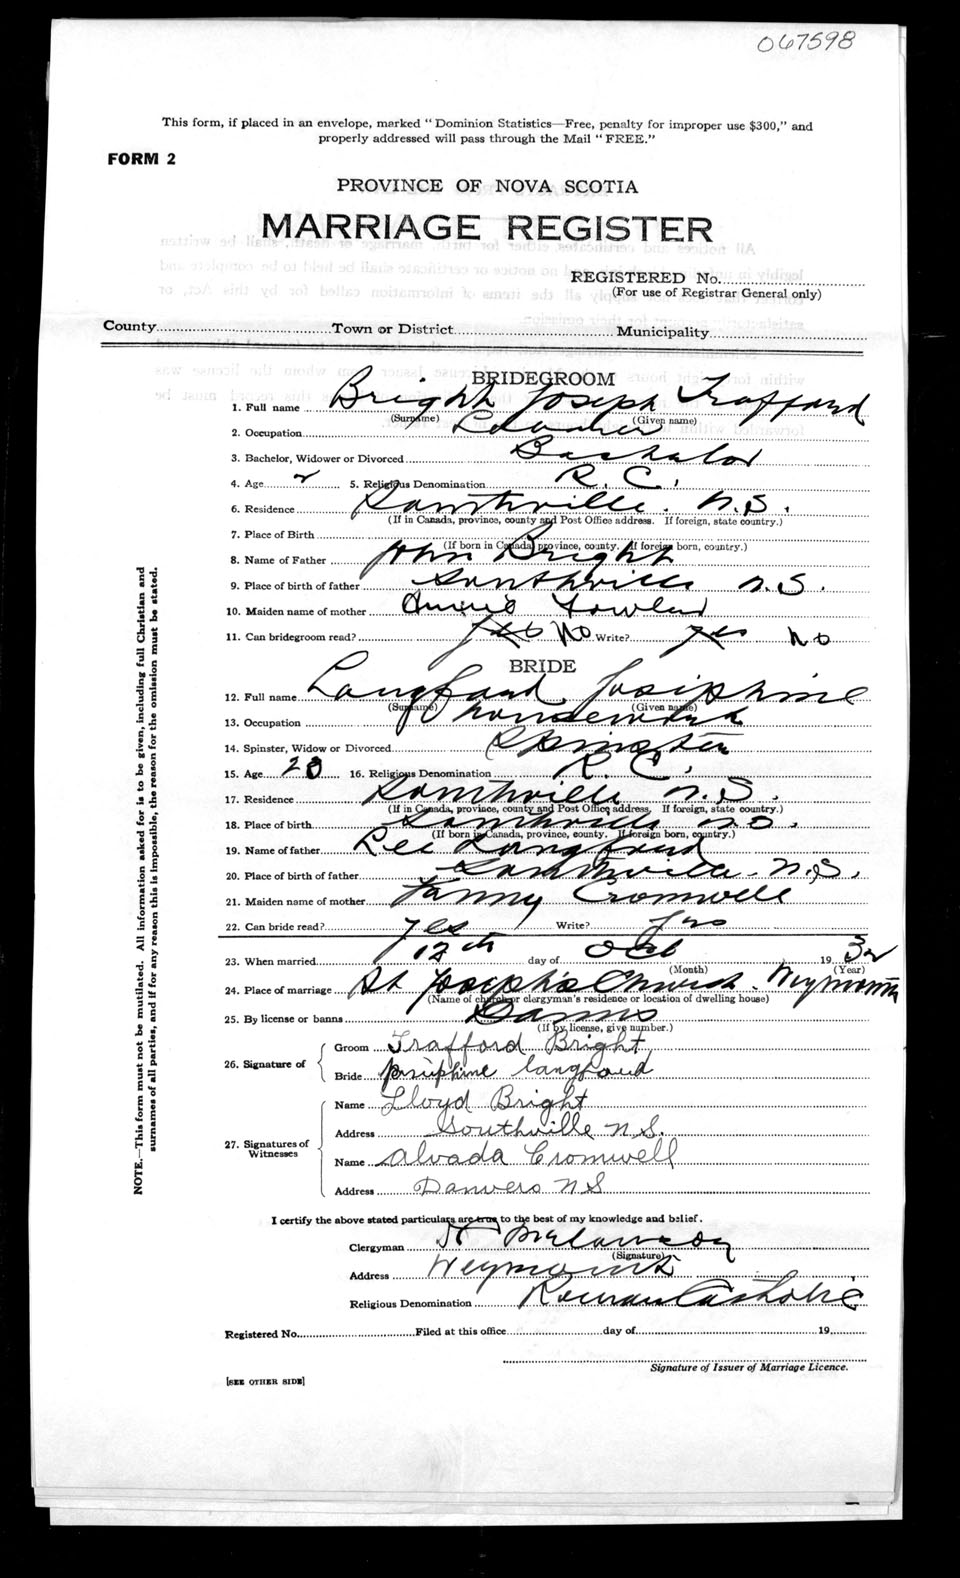 067598
This form, if placed in an envelope, marked "Dominion Statistics—Free, penalty for improper use $300," and
properly addressed will pass through the Mail "FREE."
FORM 2
PROVINCE OF NOVA SCOTIA
MARRIAGE REGISTER
REGISTERED No.
(For use of Registrar General only)
County Town or District Municipality
BRIDEGROOM
1. Full name Bright Joseph Trafford
(Surname) (Given name)
2. Occupation
3. Bachelor, Widower or Divorced Bachelor
4. Age 5. Religious Denomination R. C.
6. Residence Southville. N.S.
(If in Canada, province, county and Post Office address. If foreign, state country.)
7. Place of Birth
(If born in Canada, province, county. If foreign born, country.)
8. Name of Father John Bright
9. Place of birth of father Southville N.S.
10. Maiden name of mother
11. Can bridegroom read? Yes No Write? Yes No
BRIDE
12. Full name Langford Josephine
(Surname) (Given name)
13. Occupation housework
14. Spinster, Widow or Divorced Spinster
15. Age 20 16. Religious Denomination R. C.
17. Residence Southville N.S.
(If in Canada, province, county and Post Office address. If foreign, state country.)
18. Place of birth Southville N.S.
(If born in Canada, province, county. If foreign born, country.)
19. Name of father Lee Langford
20. Place of birth of father Southville. N.S.
21. Maiden name of mother Fanny Cromwell
22. Can bride read? Yes Write? Yes
23. When married 12th day of Oct 19 32
(Month) (Year)
24. Place of marriage St Joseph's Church. Weymouth
(Name of church or clergyman's residence or location of dwelling house)
25. By license or banns Banns
(If by license, give number.)
26. Signature of
Groom Trafford Bright
Bride Josephine Langford
27. Signatures of Witnesses
Name Lloyd Bright
Address Southville N.S.
Name Alvada Cromwell
Address Danvers N S
I certify the above stated particulars are true to the best of my knowledge and belief.
Clergyman
(Signature)
Address Weymouth
Religious Denomination Roman Catholic
Registered No. Filed at this office day of 19
Signature of Issuer of Marriage Licence.
[SEE OTHER SIDE]
NOTE.—This form must not be mutilated. All information asked for is to be given, including full Christian and
surnames of all parties, and if for any reason this is impossible, the reason for the omission must be stated.